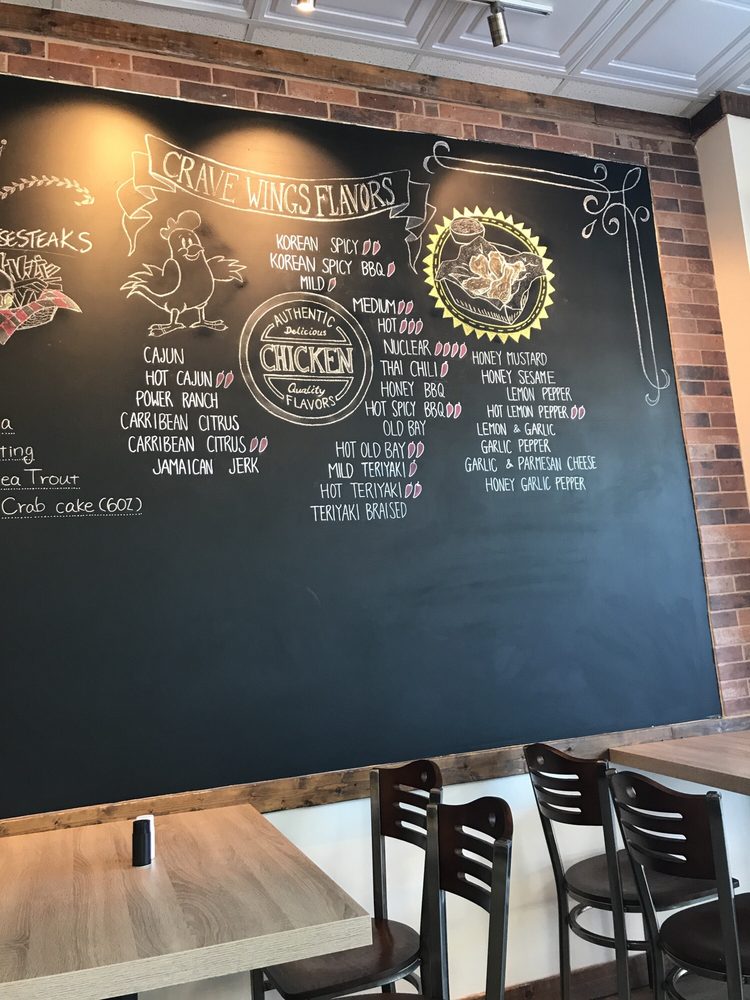 CRAVE WINGS FLAVORS
KOREAN SPICY
KOREAN SPICY BBQ
MILD
MEDIUM
HOT
NUCLEAR
THAI CHILI
HONEY BBQ
HOT SPICY BBQ
OLD BAY
HOT OLD BAY
MILD TERIYAKI
HOT TERIYAKI
TERIYAKI BRAISED
AUTHENTIC
Delicious
CHICKEN
Quality
FLAVORS
CAJUN
HOT CAJUN
POWER RANCH
CARRIBEAN CITRUS
CARRIBEAN CITRUS
JAMAICAN JERK
HONEY MUSTARD
HONEY SESAME
LEMON PEPPER
HOT LEMON PEPPER
LEMON & GARLIC
GARLIC PEPPER
GARLIC & PARMESAN CHEESE
HONEY GARLIC PEPPER
ESESTEAKS
a
ting
ea Trout
Crab cake (6OZ)